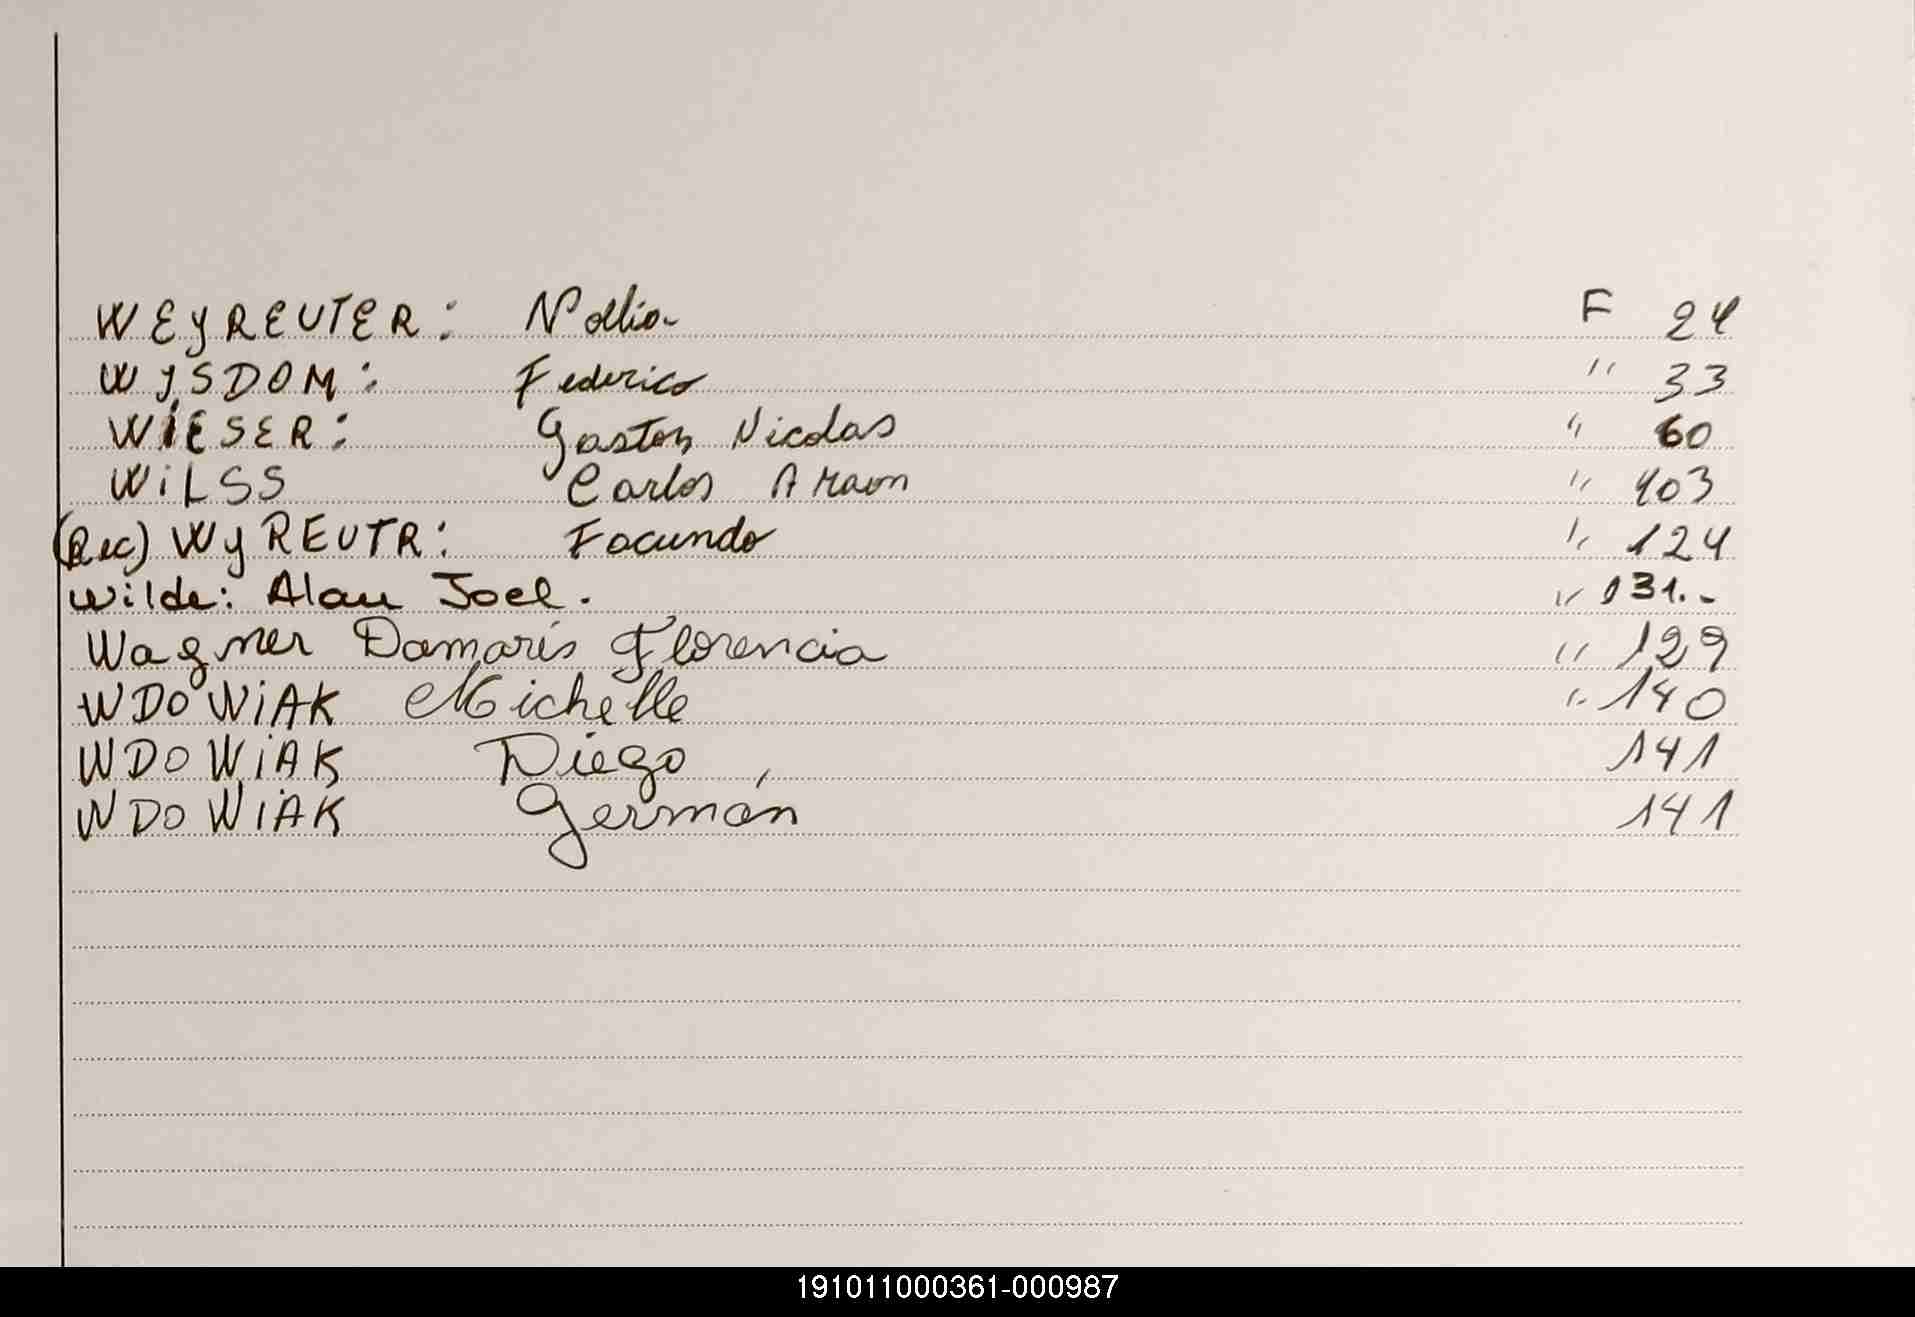 WEYREUTER: F 24
WYSDOM: Federico " 33
WIESER: Gaston Nicolas " 60
WILSS Carlos Araon " 103
(Rec) WyREUTR: Facundo " 124
Wilde: Alan Joel. " 131.-
Wagner Damaris Florencia " 129
WDOWIAK Michelle " 140
WDOWIAK Diego 141
WDOWIAK Germán 141
191011000361-000987